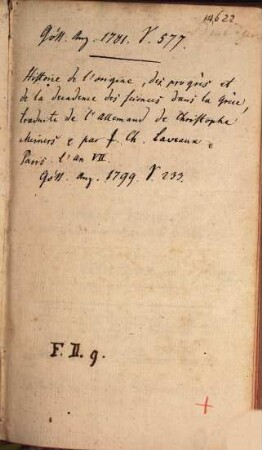 14622
Gött. Anz. 1781. V. 577.
Histoire de l'origine, des progrès et
de la decadence des sciences dans la Grèce,
traduite de l'Allemand de Christophe
Meiners & par J. Ch. Laveaux,
Paris. l'an VII.
Gött. Anz. 1799. V. 233.
F. II. 9.